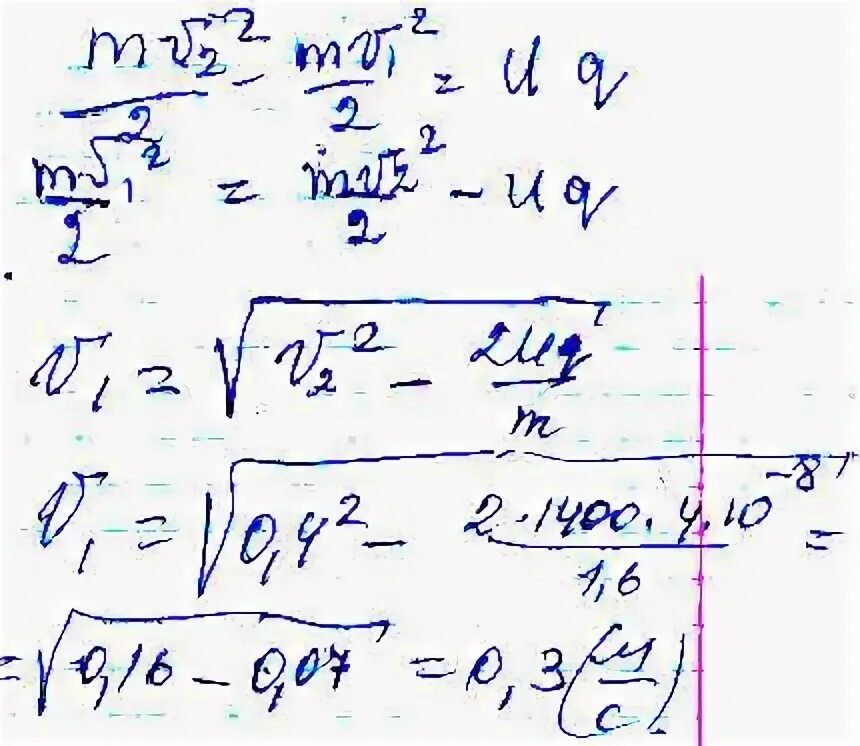 mv₂²/2 - mv₁²/2 = Uq
mv₁²/2 = mv₂²/2 - Uq
v₁ = √(v₂² - 2Uq/m)
v₁ = √(0,4² - 2·1400·4·10⁻⁸/1,6) =
= √(0,16 - 0,07) = 0,3 (см/с)